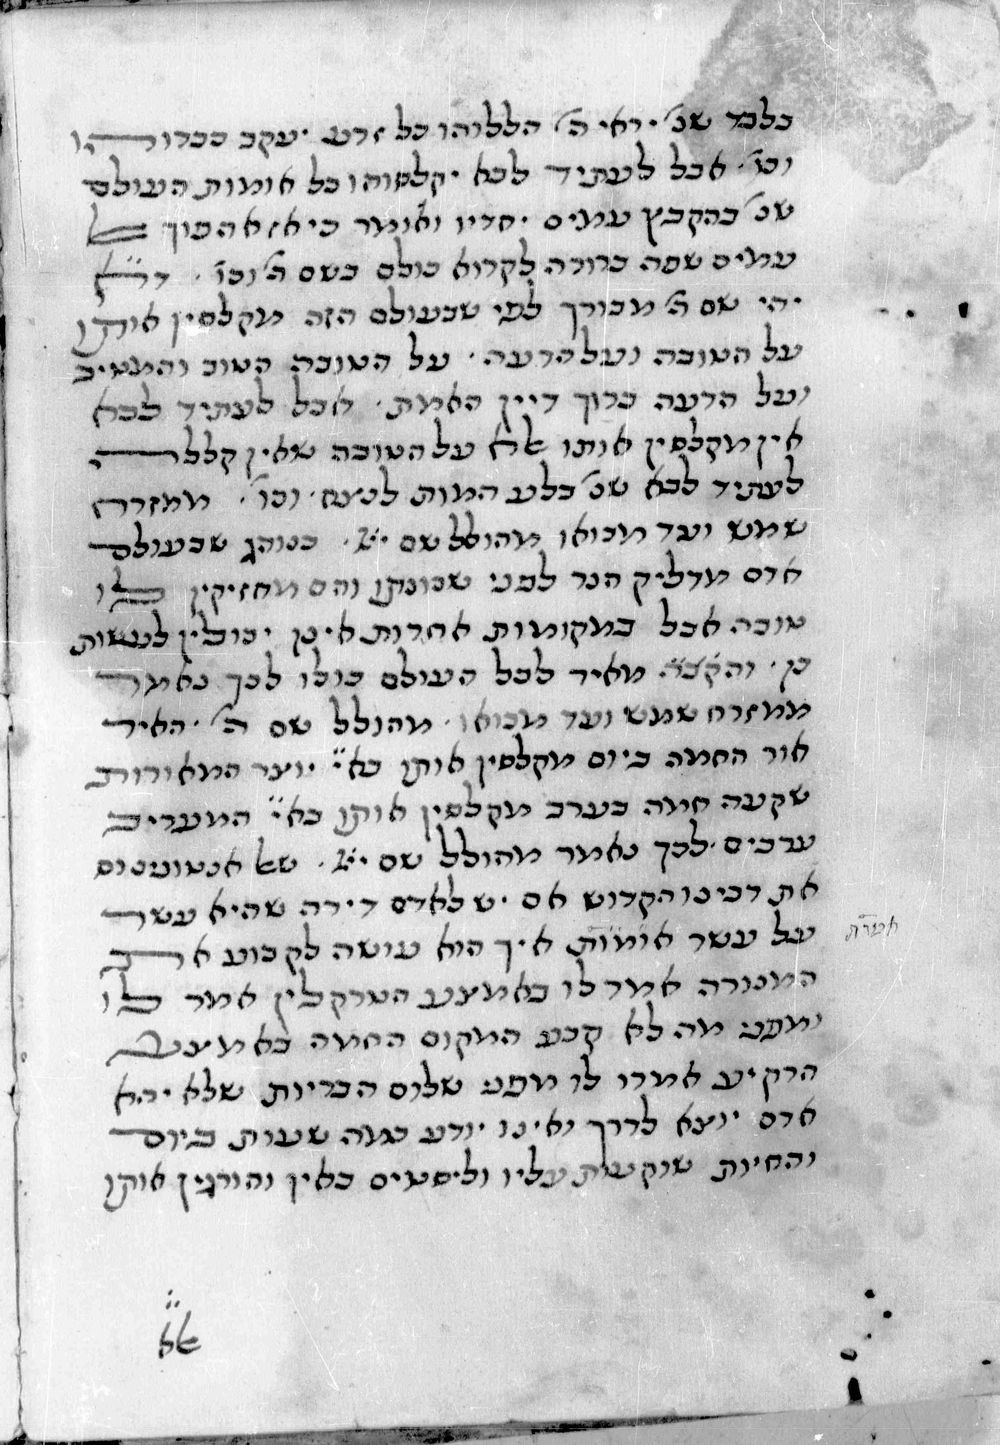 בלבד שנ' יראי ה' הללוהו כל זרע יעקב כבדוהו
וכו'. אבל לעתיד לבא יקלסוהו כל אומות העולם
שנ' בהקבץ עמים יחדיו ואומר כי אז אהפוך אל
עמים שפה ברורה לקרוא כולם בשם ה' וכו'. ד"א
יהי שם ה' מבורך לפי שבעולם הזה מקלסין אותו
על הטובה ועל הרעה. על הטובה הטוב והמטיב
ועל הרעה ברוך דיין האמת. אבל לעתיד לבא
אין מקלסין אותו אלא על הטובה שאין קללה
לעתיד לבא שנ' בלע המות לנצח. וכו'. ממזרח
שמש ועד מבואו מהולל שם יי'. בנוהג שבעולם
אדם מדליק הנר לפני שכונתו והם מחזיקין לו
טובה אבל במקומות אחרות אינן יכולין לעשות
כן. והקב"ה מאיר לכל העולם כולו לכך נאמר
ממזרח שמש ועד מבואו. מהולל שם ה'. האיר
אור החמה ביום מקלסין אותו בא"י יוצר המאורות
שקעה חמה בערב מקלסין אותו בא"י המעריב
ערבים. לכך נאמר מהולל שם יי'. שאל אנטונינוס
את רבינו הקדוש אם יש לאדם דירה שהיא עשר
על עשר אימות איך הוא עושה לקבוע את
אמות
המנורה אמר לו באמצע הטרקלין אמר לו
ומפני מה לא קבע המקום החמה באמצע
הרקיע אמרו לו מפני שלום הבריות שלא יהא
אדם יוצא לדרך ואינו יודע כמה שעות ביום
והחיות שוקעות עליו ולסטים באין והורגין אותו